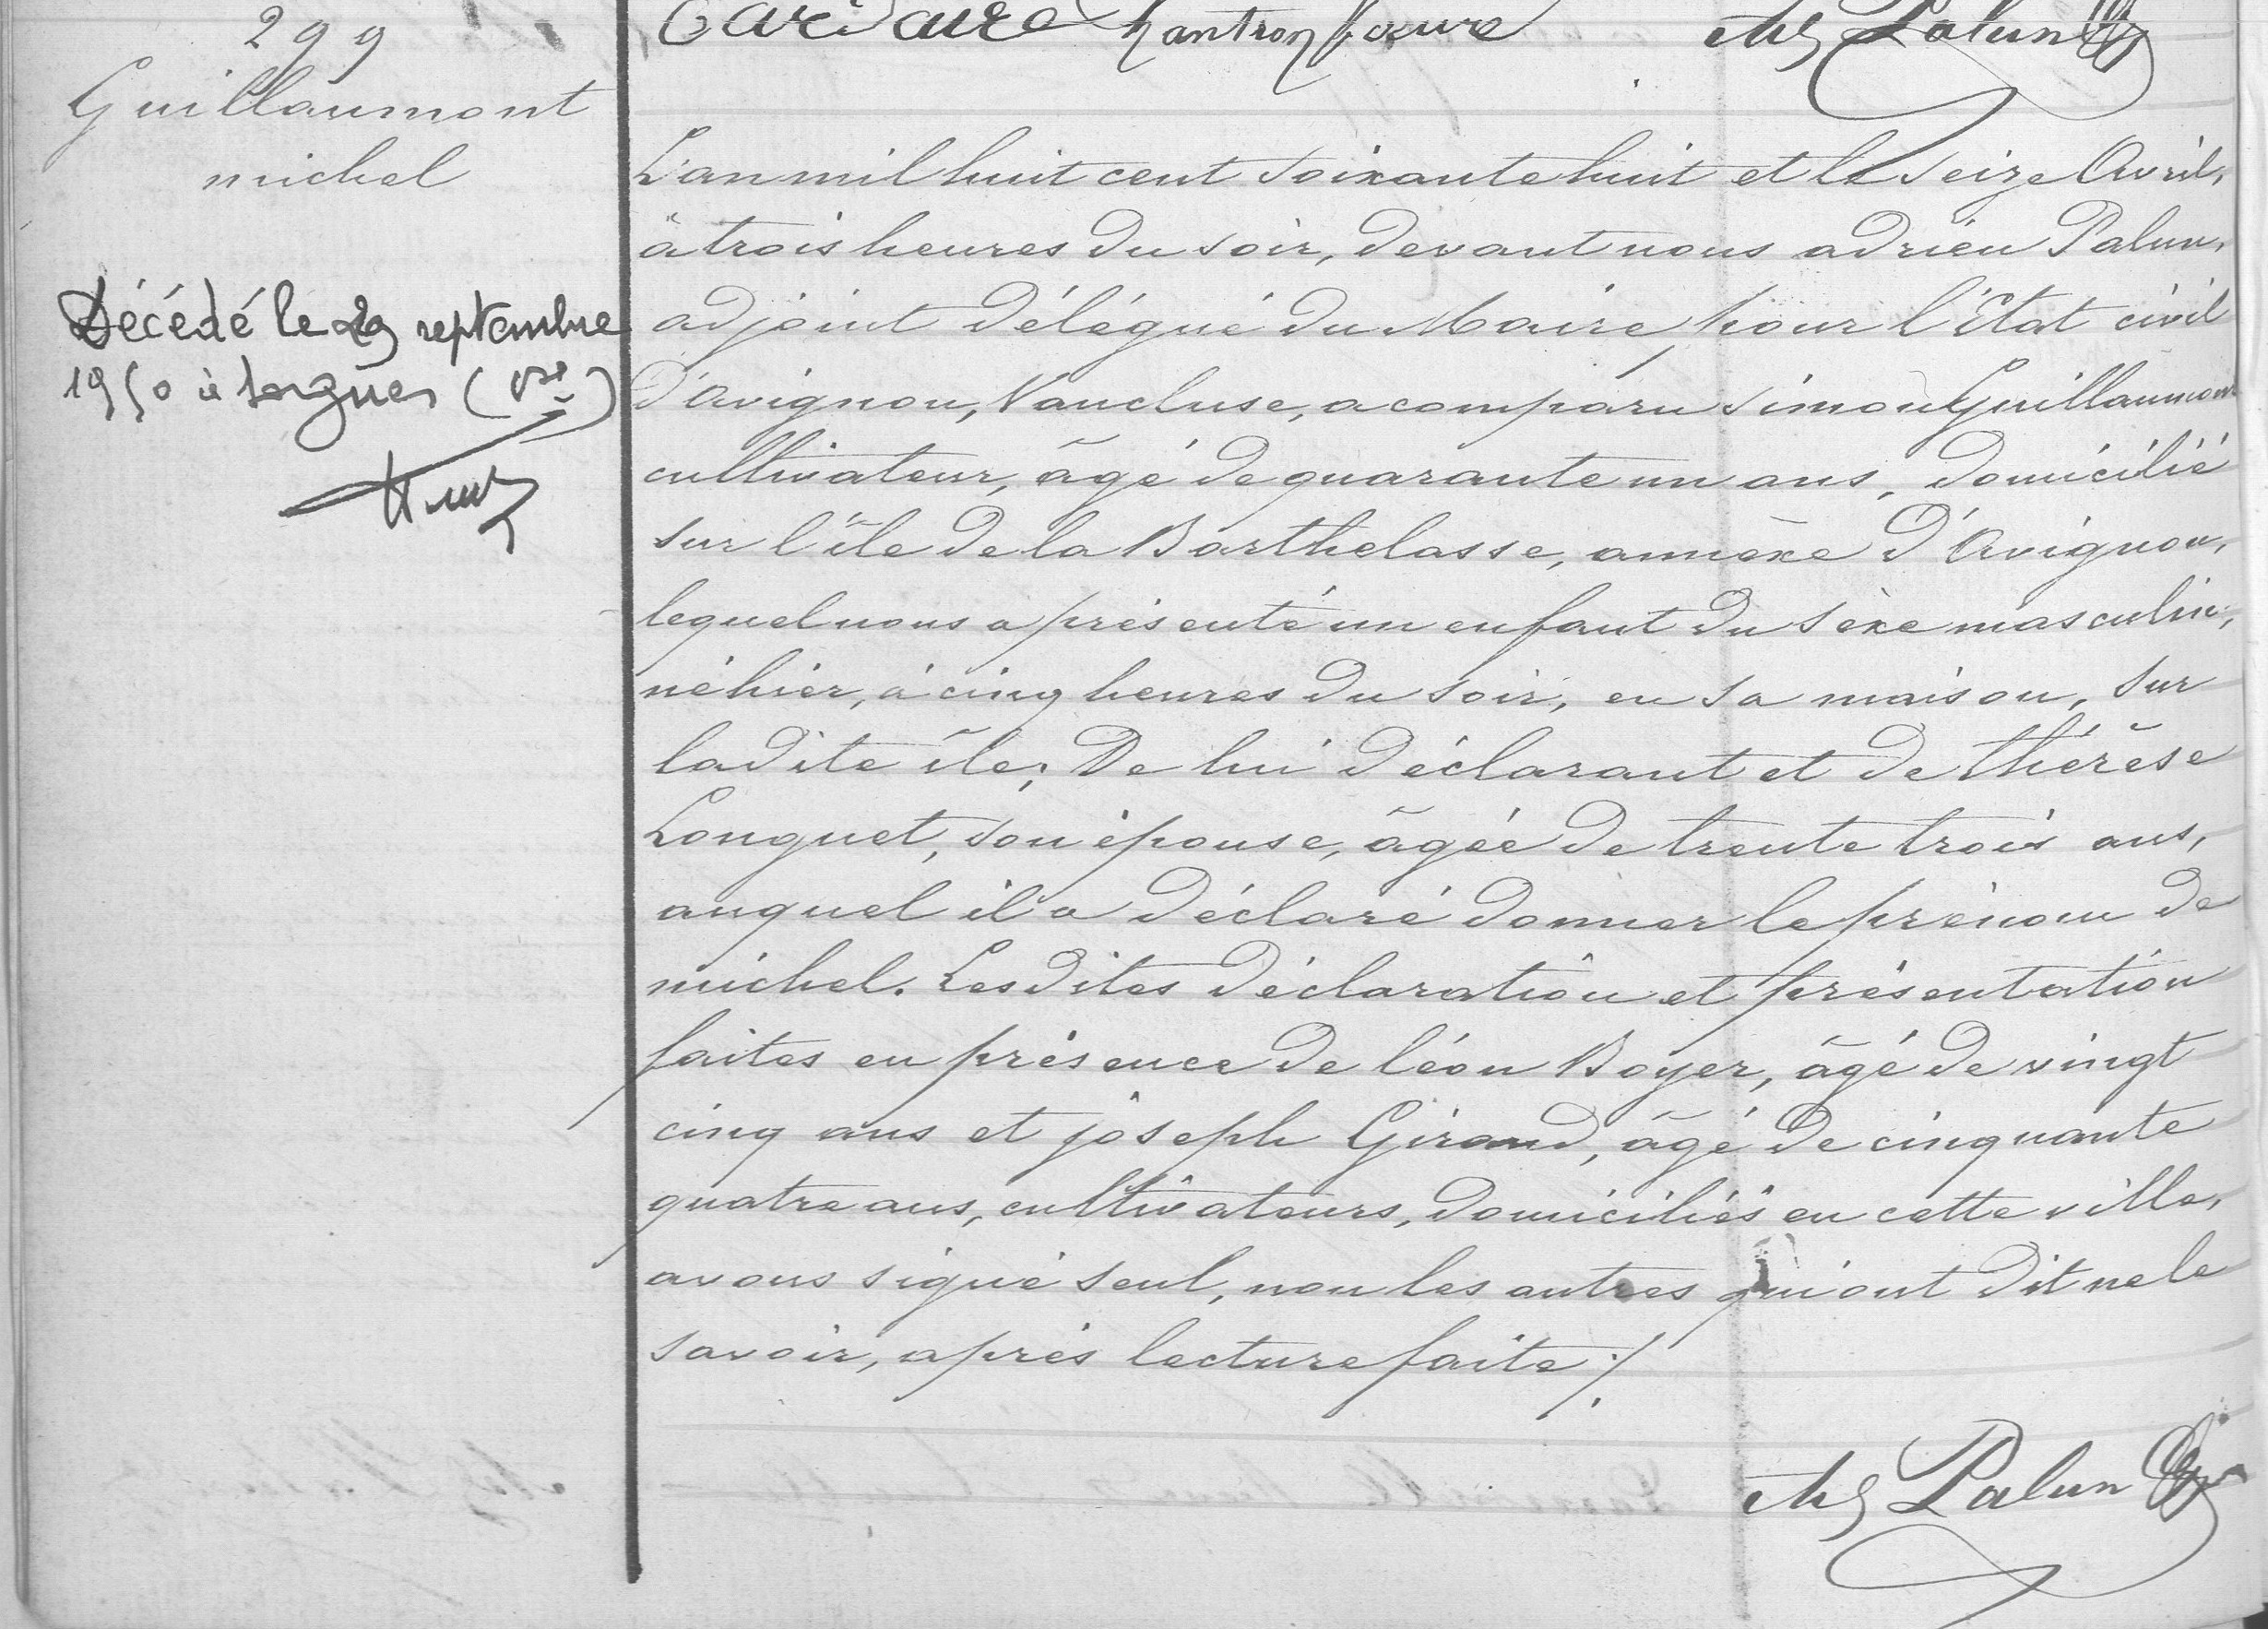 299
Guillaumont
michel
Décédé le 29 septembre
1950 à Sorgues (Vse)
Palun
L'an mil huit cent soixante huit et le seize Avril,
à trois heures du soir, devant nous adrien Palun,
adjoint délégué du Maire pour l'Etat civil
d'Avignon, Vaucluse, a comparu simon Guillaumont
cultivateur, âgé de quarante un ans, domicilié
sur l'île de la Barthelasse, annexe d'Avignon,
lequel nous a présenté un enfant du sexe masculin,
né hier, à cinq heures du soir, en sa maison, sur
ladite île; De lui déclarant et de thérèse
Longuet, son épouse, âgée de trente trois ans,
auquel il a déclaré donner le prénom de
michel. Lesdites déclaration et présentation
faites en présence de léon Boyer, âgé de vingt
cinq ans et joseph Giraud, âgé de cinquante
quatre ans, cultivateurs, domiciliés en cette ville,
avons signé seul, non les autres qui ont dit ne le
savoir, après lecture faite ./.
Palun